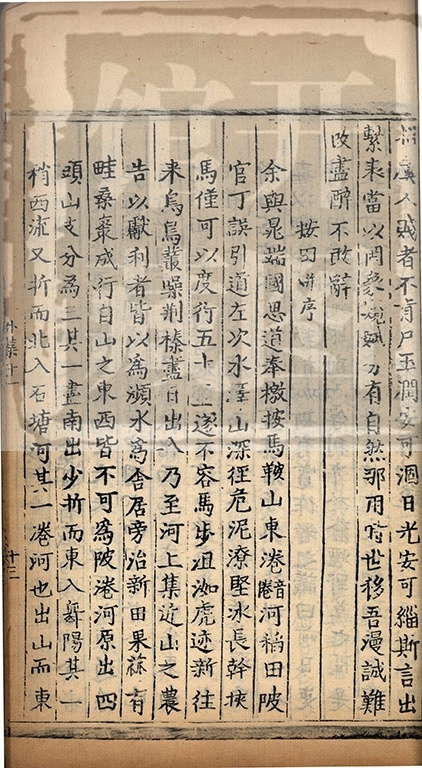 溪入賤者不肯尸玉潤安可涸日光安可緇斯言出
繫表當以罔象窺賦分有自然那用時世移吾漫誠難
改盡醉不敢辭
按田并序
余與晁端國思道奉檄按馬鞍山東港音巷河稻田陂
官丁誤引道左次水澤山深徑危泥潦堅冰長幹挾
馬僅可以度行五十里遂不容馬步沮洳虎迹新往
来烏烏叢噪荆榛盡日出入乃至河上集近山之農
告以獻利者皆以爲瀕水爲舍居旁治新田果蓏有
畦桑棗成行自山之東西皆不可爲陂港河原出四
頭山支分爲三其一盡南出少折而東入舞陽其一
稍西流又折而北入石塘河其一港河也出山而東
外集十一
十三